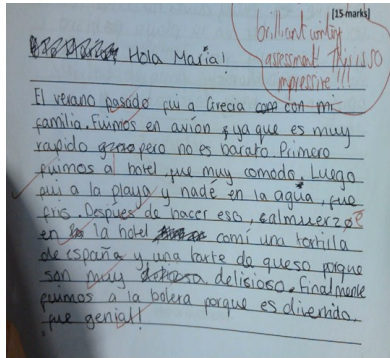 [15 marks]
brilliant writing
assessment! This is so
impressive!!!
Hola Maria!
El verano pasado fui a Grecia con mi
familia. Fuimos en avión ya que es muy
rapido pero no es barato. Primero
fuimos al hotel, fue muy comodo. Luego
fui a la playa y nade en la agua, fue
fris. Despues de hacer eso, almuerzo é
en la hotel comí una tortilla
de españa y una tarte de queso porque
son muy delisioso. Finalmente
fuimos a la bolera porque es divertido.
fue genial!